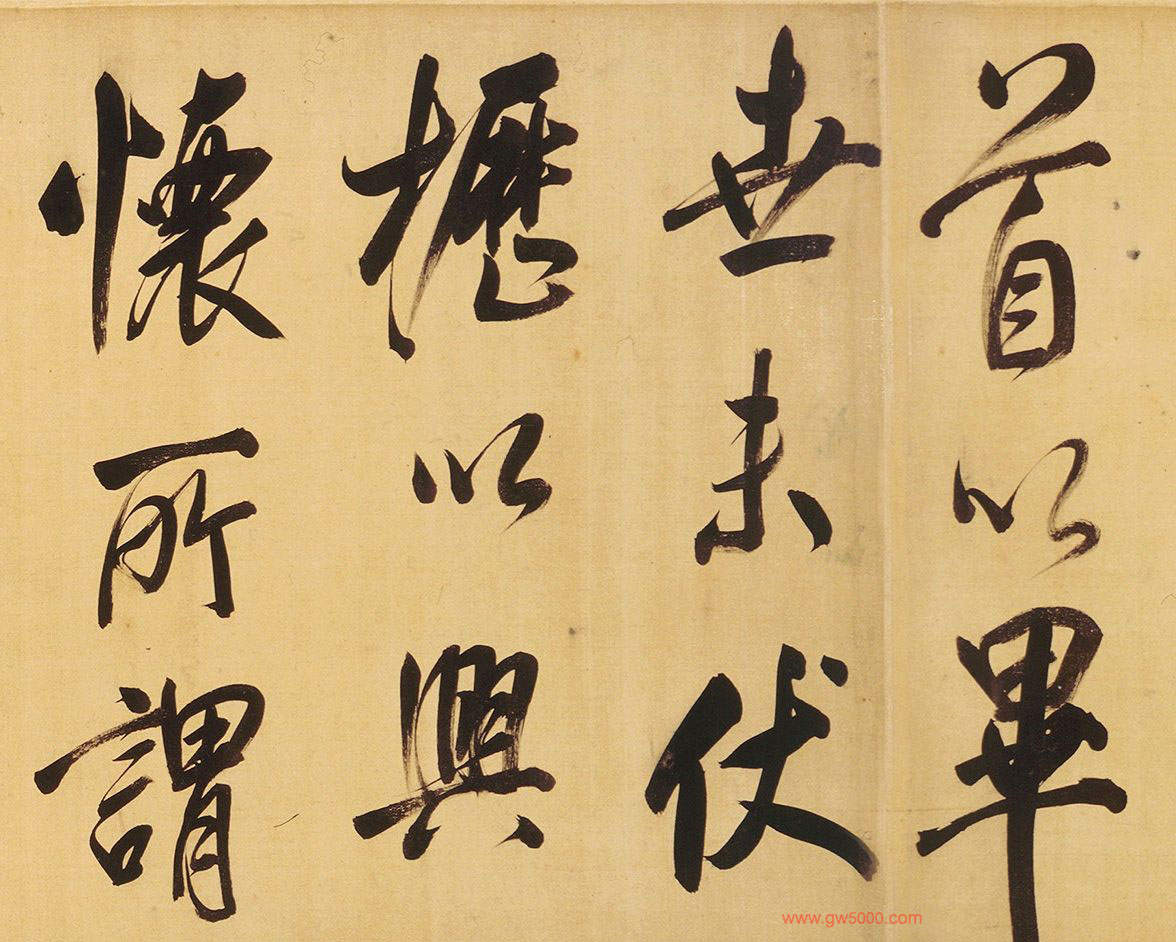 首以畢
世未伏
櫪以興
懷所謂
www.gw5000.com